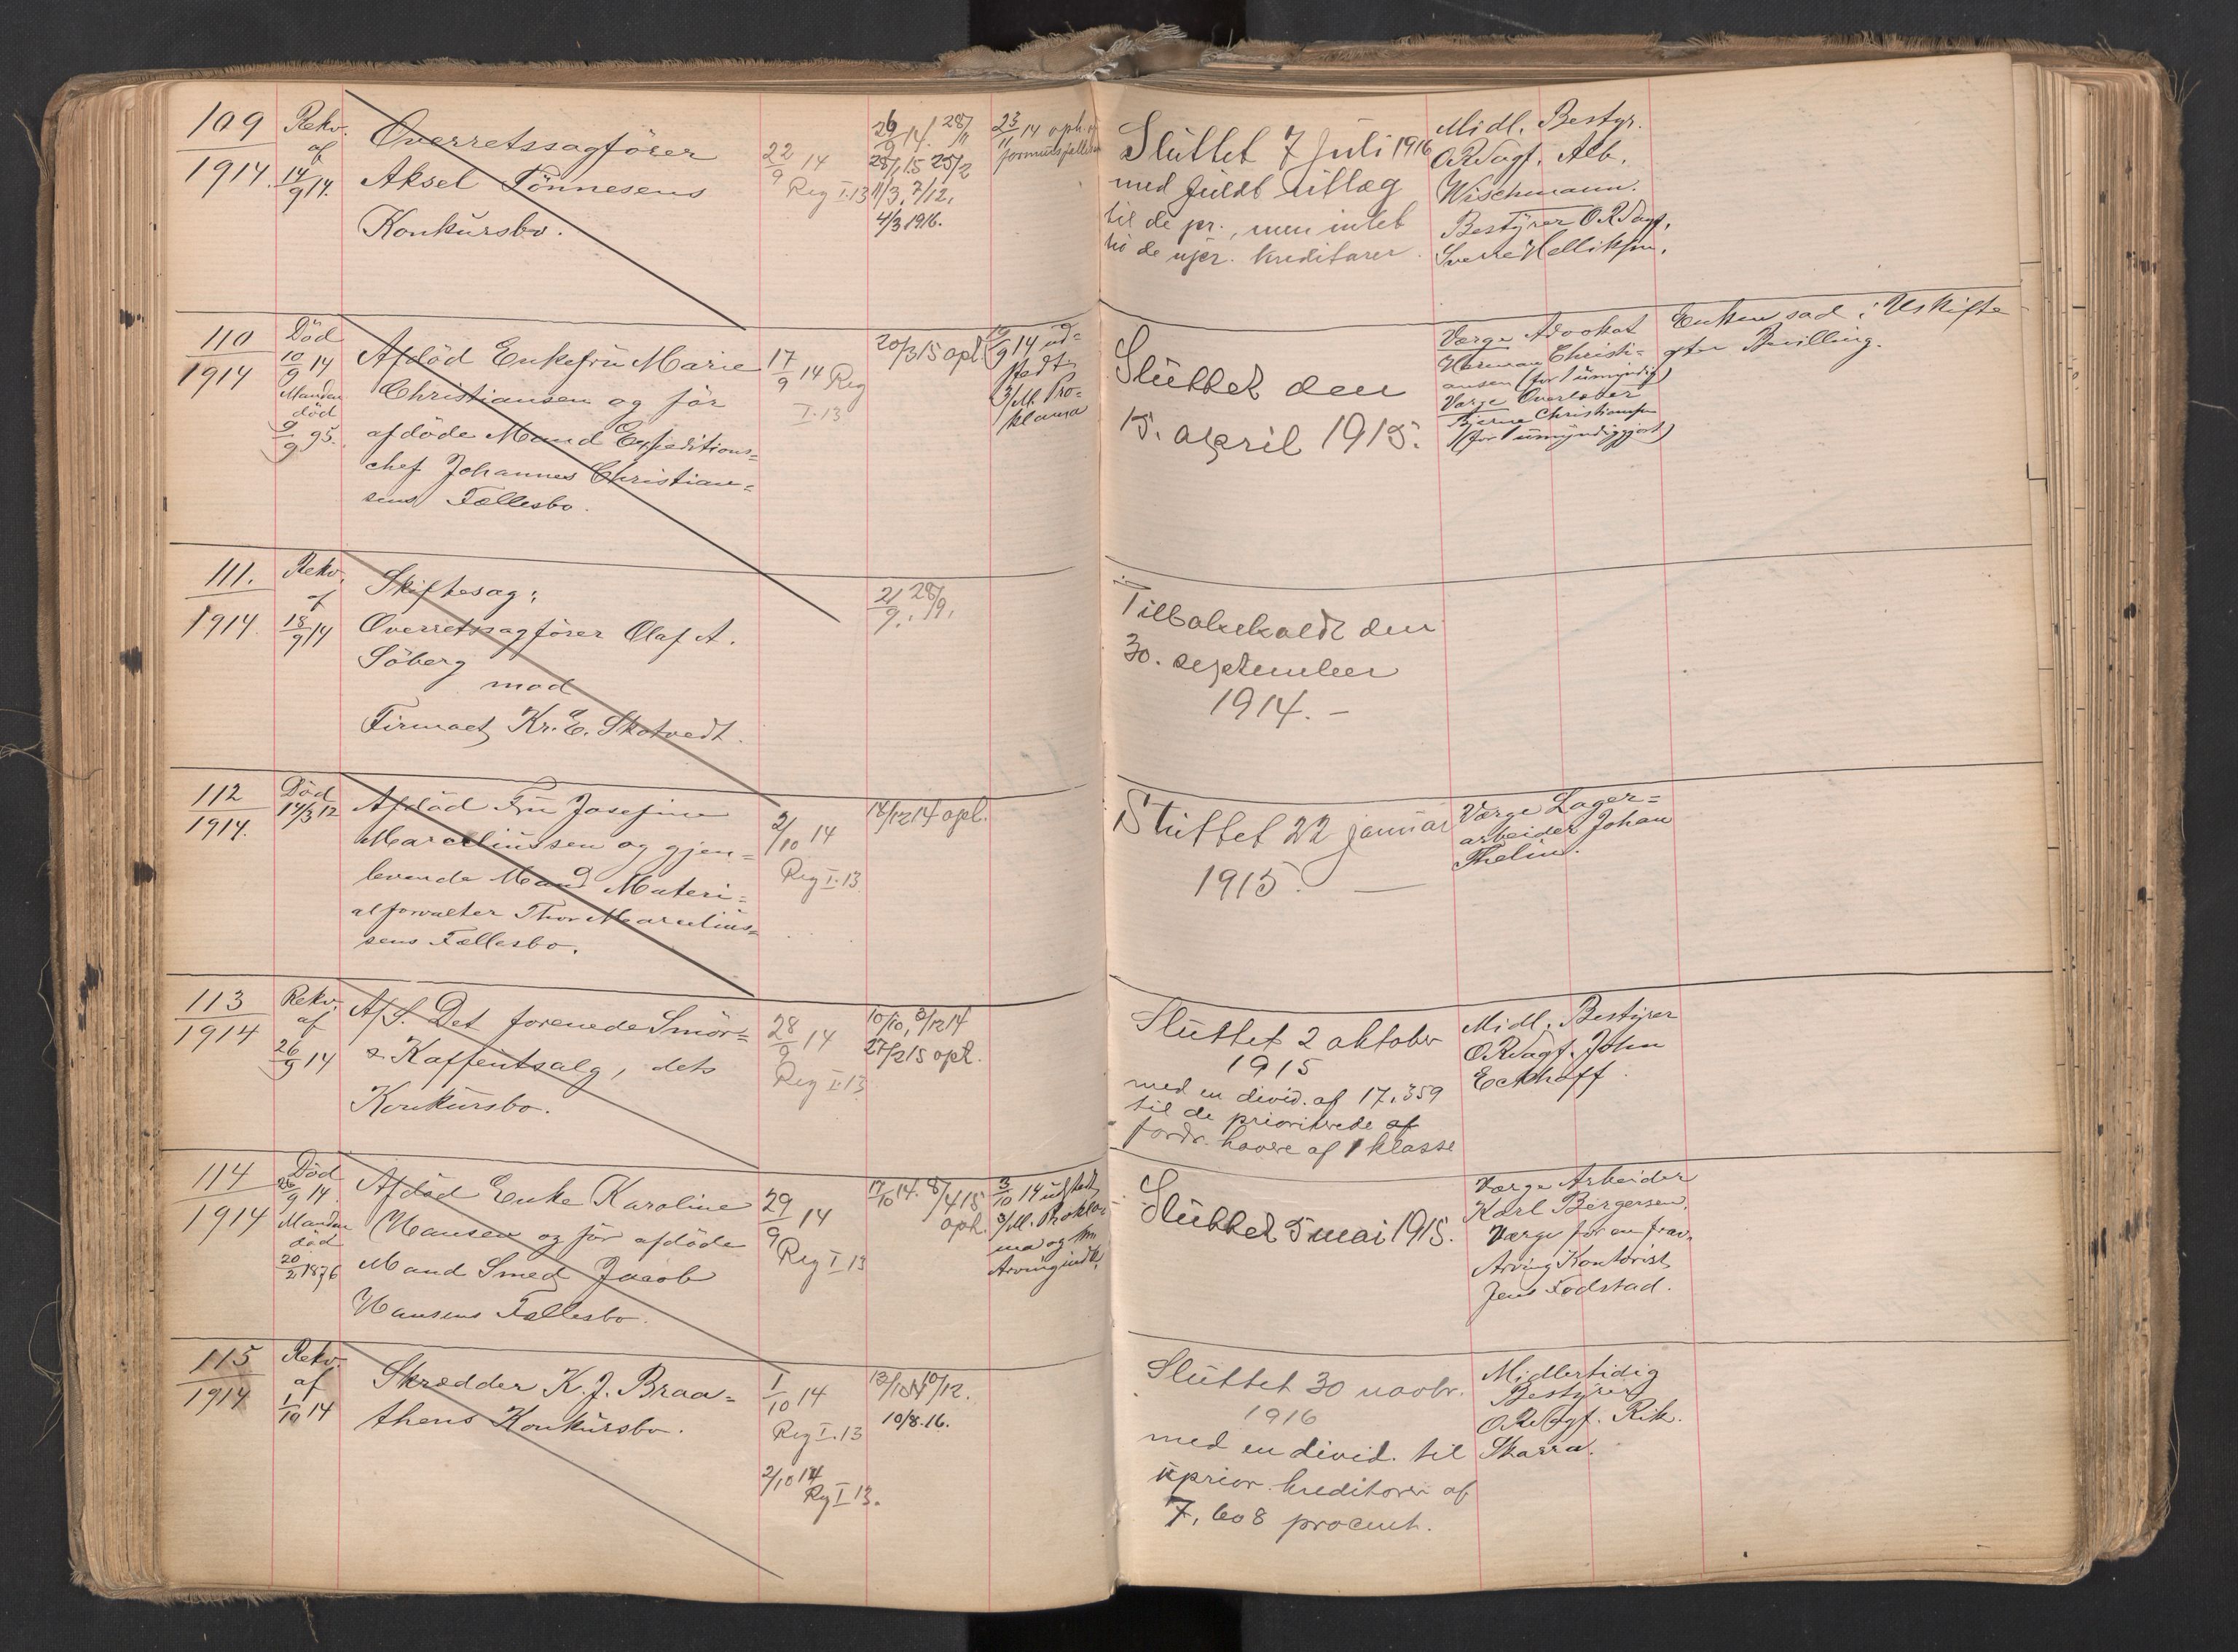 109
1914.
Rekv.
af
14/9 14.
Overretssagfører
Aksel Tönnesens
Konkursbo.
22/9 14
Reg I.13
26/9 14. 28/11
28/1 15 25/2
11/3. 7/12.
4/3 1916.
23/11 14 oph. af
Sluttet 7 juli 1916
med fuldt utlæg
til de pr., men intet
til de upr. kreditorer.
Midl. Bestyr.
ORSagf. Alb.
Wischmann.
Bestyrer ORSagf.
Sverre Helliksen.
110
1914
Död
10/9 14
Manden
död
9/9 95.
Afdöd Enkefru Marie
Christiansen og før
afdöde Mand Expeditions=
chef Johannes Christian=
sens Fællesbo.
17/9 14 Reg
I.13
20/3 15 opl.
/9 14 ud=
stedt
3/M. Pro=
klama
Sluttet den
15. april 1915.
Værge Advokat
Herman Christi=
ansen (for 1 umyndig)
Værge Overlærer
Bjarne Christiansen
(for 1 umyndiggjort)
Enken sad i Uskifte
efter Bevilling.
111.
1914.
Rekv.
af
18/9 14
Skiftesag:
Overretssagförer Olaf A.
Söberg
mod
Firmaet Kr. E. Skotvedt.
21/9. 28/9.
Tilbakekaldt den
30. september
1914. -
112
1914.
Död
14/3 12
Afdöd Fru Josefine
Marceliussen og gjen=
levende Mand Materi=
alforvalter Thor Marcelius=
sens Fællesbo.
2/10 14
Reg I.13.
14/12 14 opl.
Sluttet 22 januar
1915. -
Værge Lager=
arbeider Johan
Thelin.
113
1914
Rekv.
af
26/9 14
A/S. Det forenede Smör=
& Kaffeutsalg, dets
Konkursbo.
28/9 14
Reg I.13
10/10, 3/12 14
27/2 15 opl.
Sluttet 2 oktober
1915
med en divid. af 17,359
til de prioriterede af
fordr.havere af 1 klasse
Midl. Bestyrer
ORSagf. John
Eckhoff.
114
1914
Död
26/9 14.
Manden
död
20/2 1876
Afdöd Enke Karoline
Hansen og før afdöde
Mand Smed Jacob
Hansens Fællesbo.
29/9 14
Reg I 13
17/10 14. 8/4 15
opl.
3/10 14 udstedt
3/M. Prokla=
ma og 1m
Arvingindk.
Sluttet 5 mai 1915.
Værge Arbeider
Karl Birgersen.
Værge for en frav.
Arving Kontorist
Jens Fodstad.
115
1914
Rekv.
af
1/10 14
Skrædder K. J. Braa=
thens Konkursbo.
1/10 14
Reg I.13
2/10 14
Reg I 13.
13/10 14 10/12.
10/8.16.
Sluttet 30 novbr.
1916
med en divid. til
uprior. kreditorer af
7,608 procent.
Midlertidig
Bestyrer
ORSagf. Rik.
Skarra.